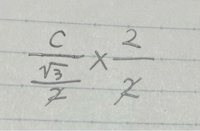 C
√3 × 2
2 2